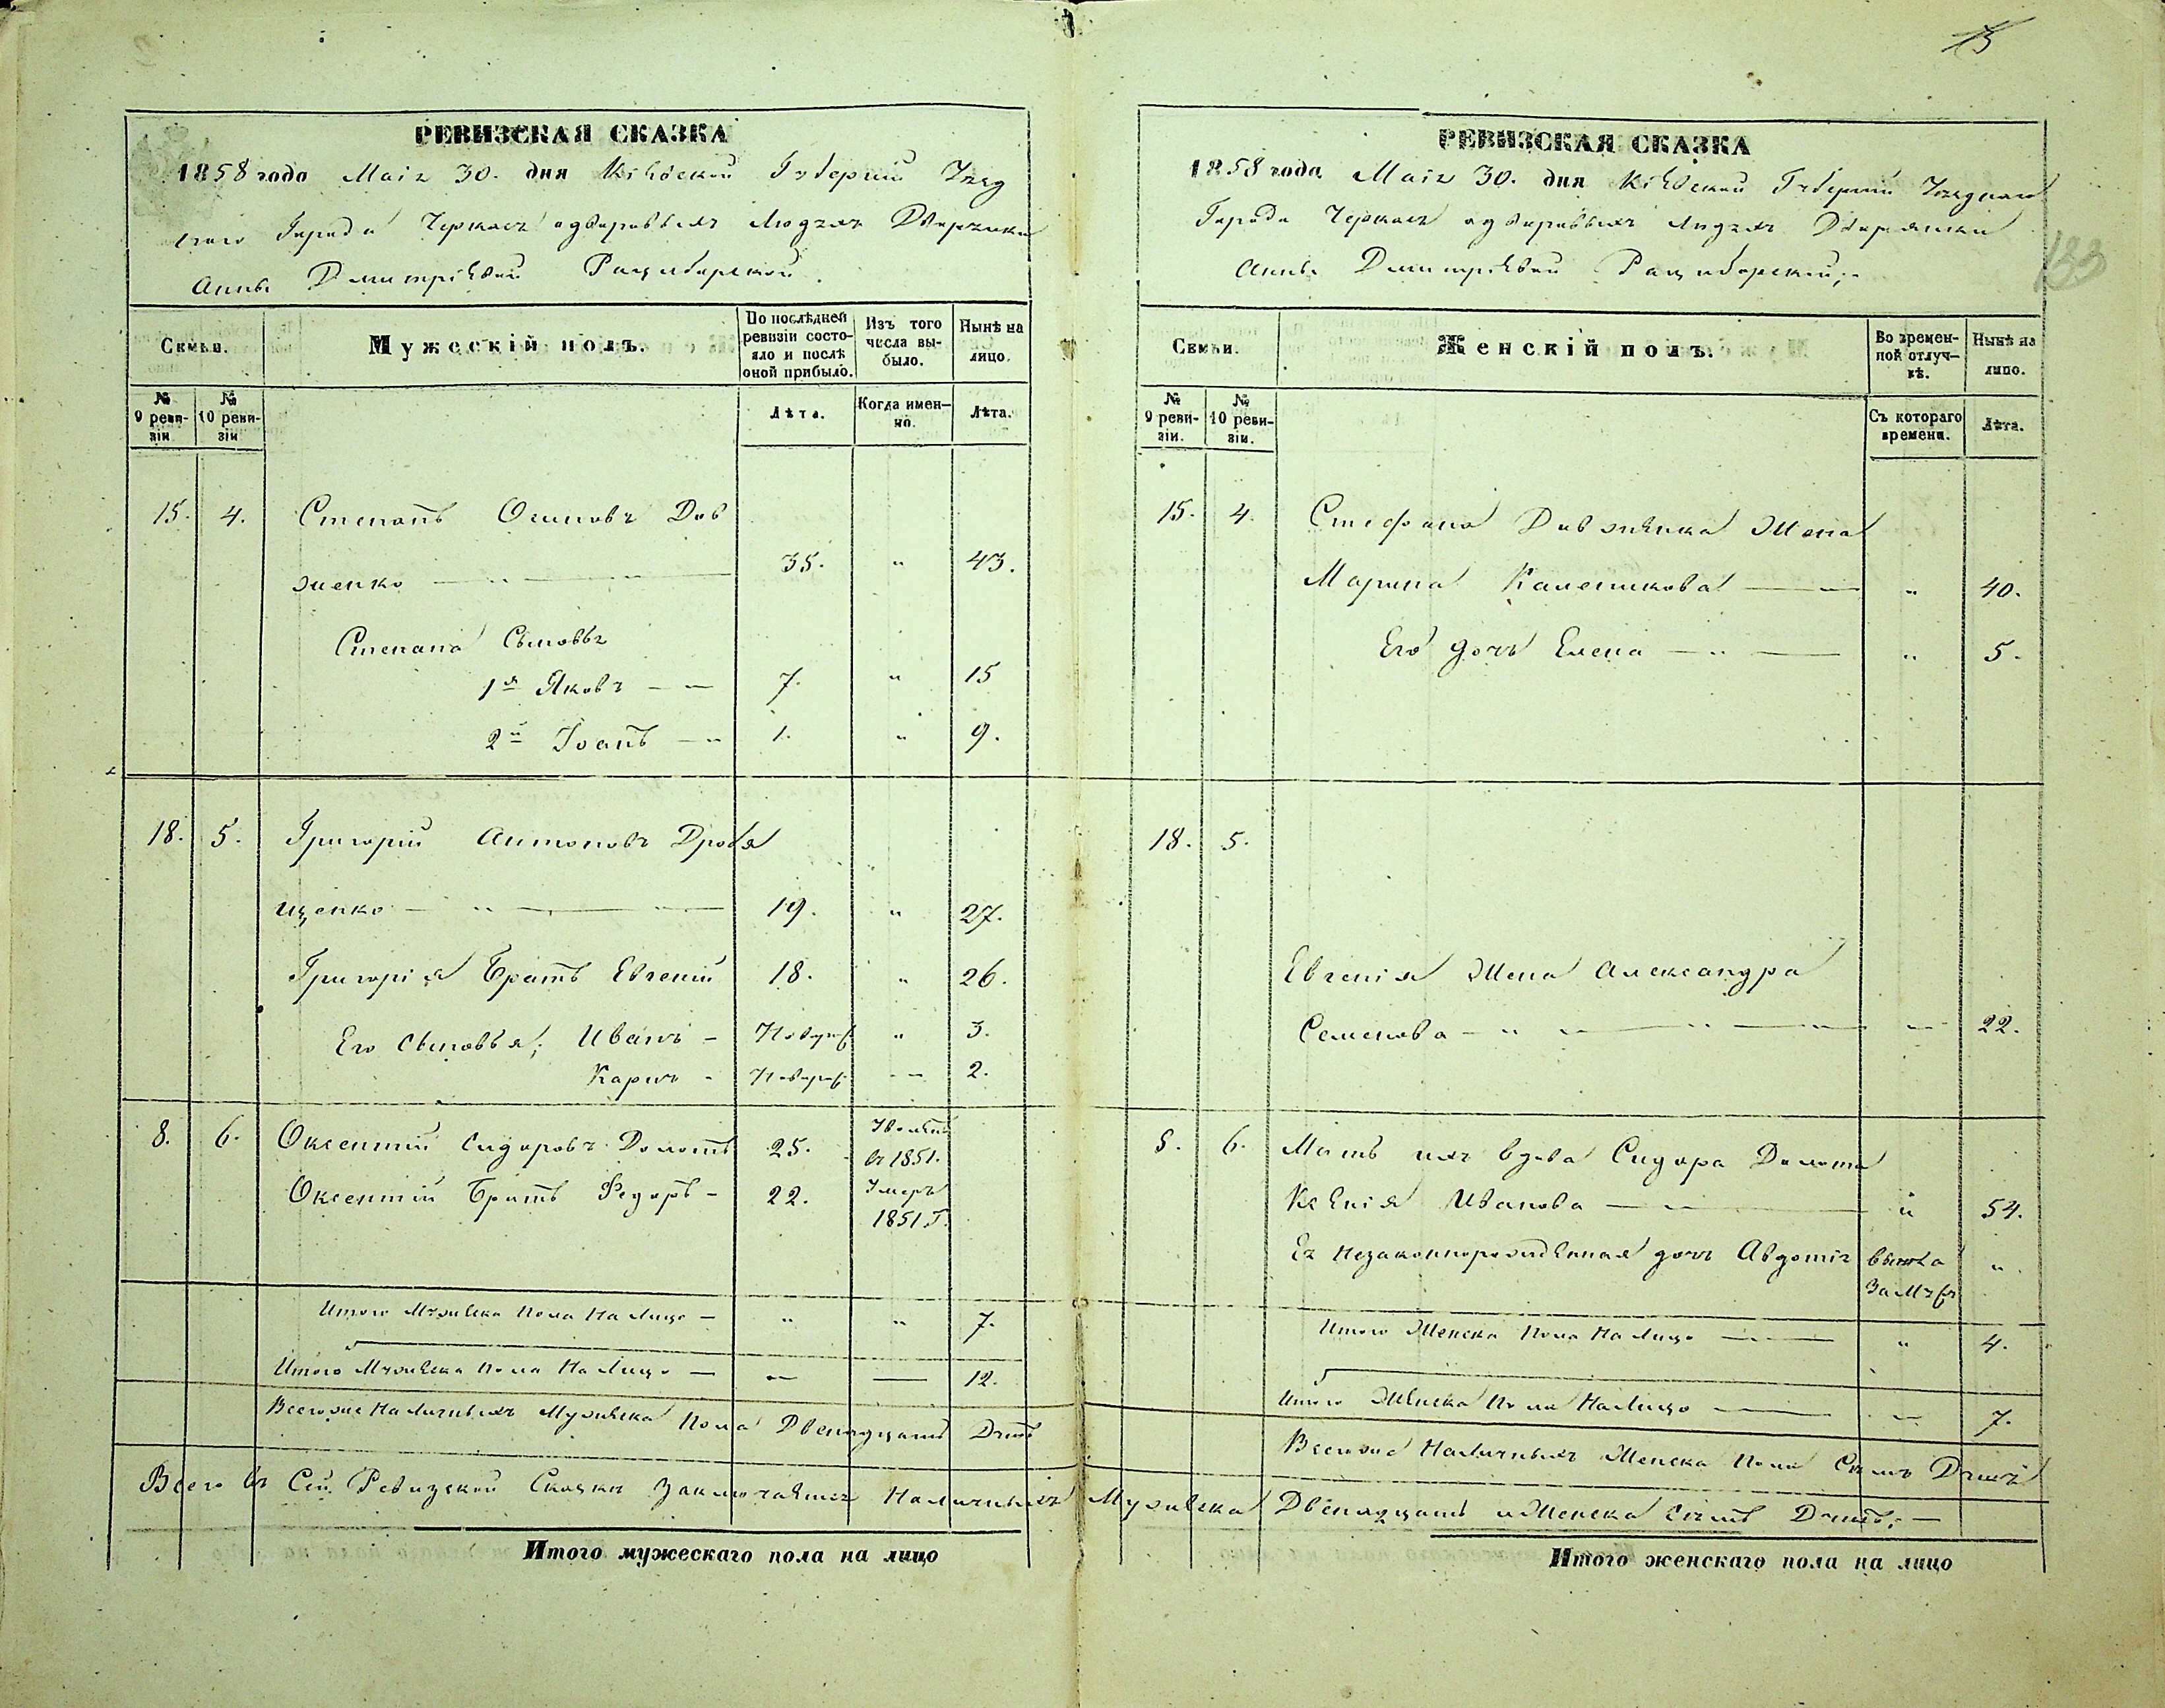 15
РЕВИЗСКАЯ СКАЗКА
1858 года Маія 30. дня Кіевской Губерніи Уезд
наго Города Черкасъ о дворовыхъ людяхъ Дворянки
Анны Дмитріевой Рацыборской.
Семьи.
Мужескій полъ.
По послѣдней ревизіи состояло и послѣ оной прибыло.
Изъ того числа выбыло.
Нынѣ на лицо.
№ 9 ревизіи
№ 10 ревизіи
Лѣта.
Когда именно.
Лѣта.
15. 4. Степанъ Осиповъ Дов
женко 35. " 43.
Степана Сыновья
1й Яковъ 7. " 15
2й Іоанъ 1. " 9.
18. 5. Григорій Антоновъ Дробя
щенко 19. " 27.
Григорія Братъ Евгеній 18. " 26.
Его Сыновья; Иванъ - Новорож " 3.
Карпъ - Новорож 2.
8. 6. Оксентій Сидоровъ Долотъ 25. въ 1851.
Оксентій Братъ Федоръ - 22. Умеръ
1851. Г.
Итого Мужеска Пола На Лицо - " " 7.
Итого Мужеска Пола На Лицо - 12.
Всего же Наличныхъ Мужеска Пола Двенадцать Душъ
Всего въ Сей Ревизской Сказки Заключается Наличныхъ Мужеска Двенадцать и Женска Семь Душъ; -
Итого мужескаго пола на лицо
РЕВИЗСКАЯ СКАЗКА
1858 года Маія 30. дня Кіевской Губерніи Уезднаго
Города Черкасъ о дворовыхъ людяхъ Дворянки
Анны Дмитріевой Рацыборской;-
133
Семьи.
Женскій полъ.
Во временной отлучкѣ.
Нынѣ на лицо.
№ 9 ревизіи.
№ 10 ревизіи.
Съ котораго времени.
Лѣта.
15. 4. Стефана Довженка Жена
Марина Каленикова " 40.
Его дочь Елена " 5.
18. 5.
Евгенія Жена Александра
Семенова 22.
8. 6. Мать ихъ вдова Сидора Долота
Ксенія Иванова " 54.
Ея Незаконнорожденная дочь Авдотія вышла "
Замужъ
Итого Женска Пола На Лицо " 4.
Итого Женска Пола На Лицо 7.
Всего же Наличныхъ Женска Пола Семь Душъ
Итого женскаго пола на лицо